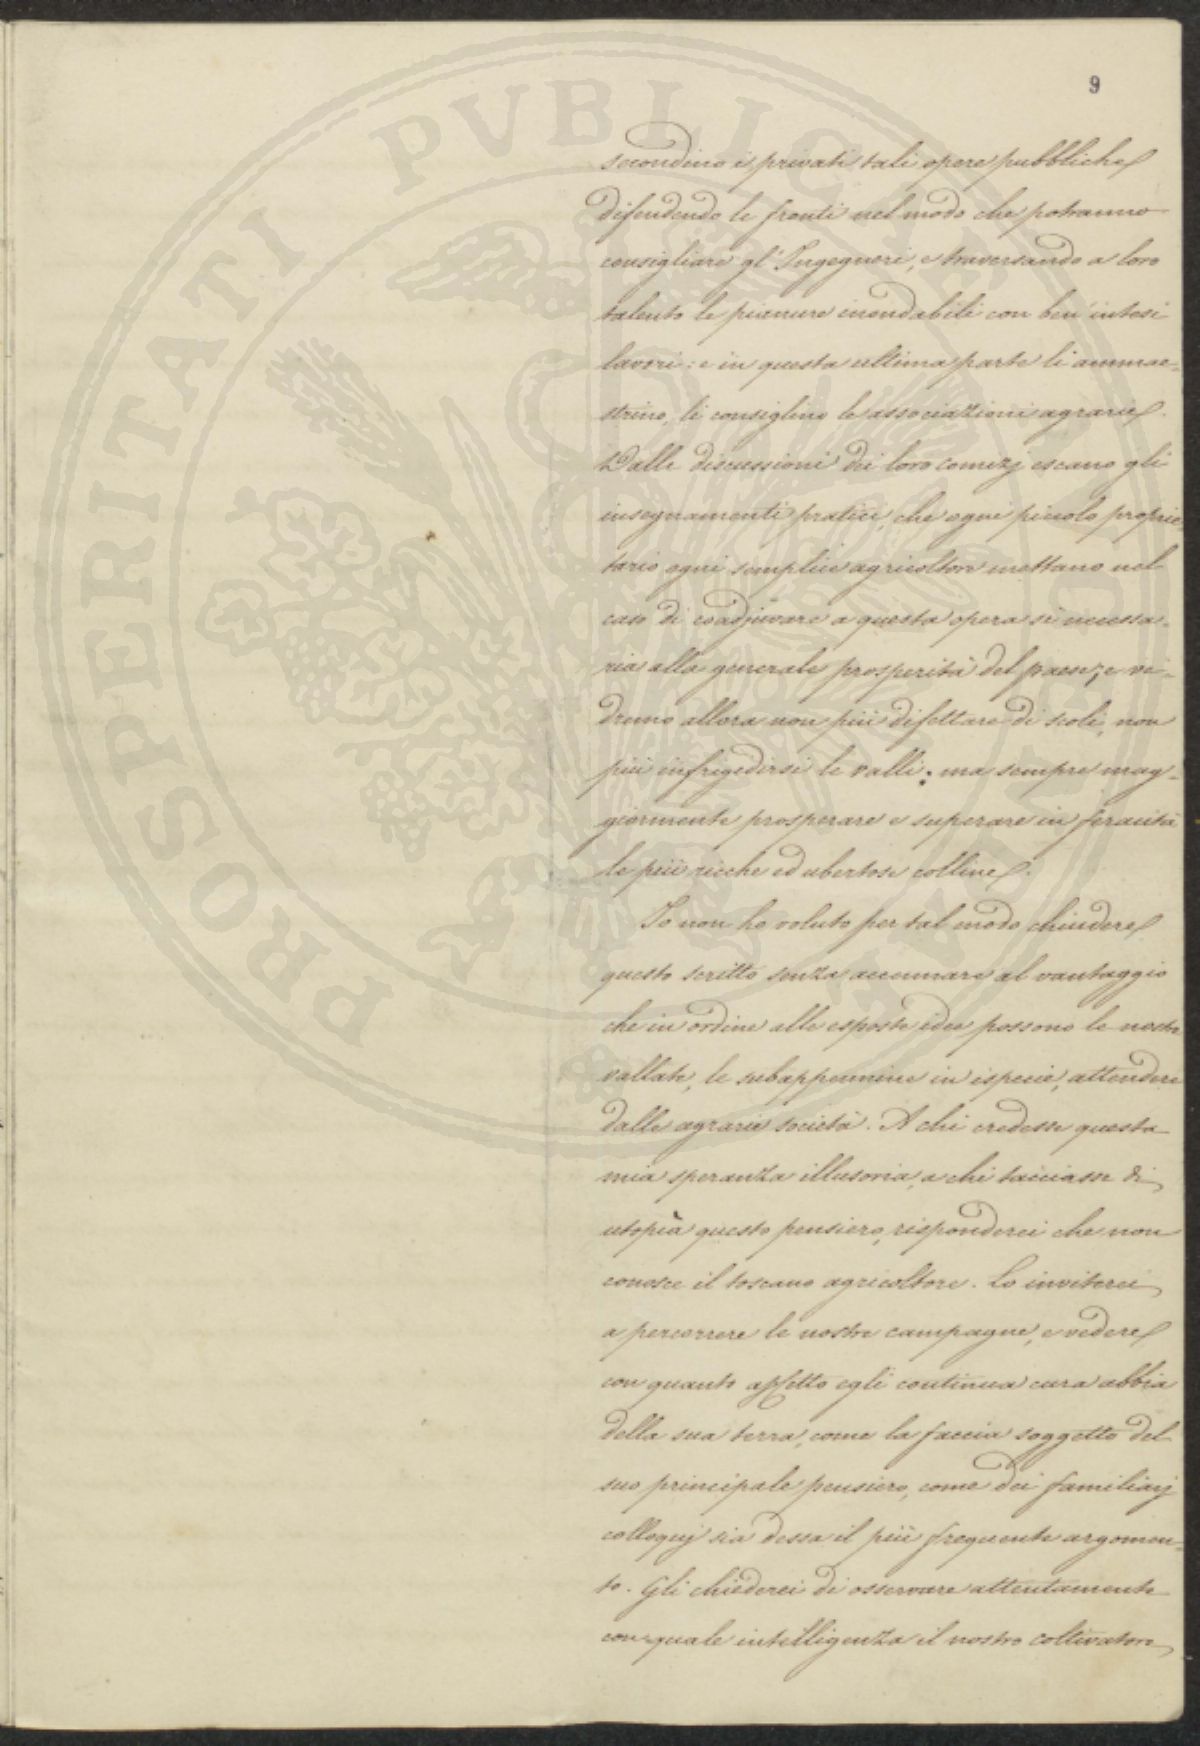 9
secondino i privati tali opere pubbliche
difendendo le fronti nel modo che potranno
consigliare gl'Ingegneri, e traversando a loro
talento le pianure inondabili con ben'intesi
lavori: e in questa ultima parte li ammae-
strino, li consiglino le associazioni agrarie.
Dalle discussioni dei loro comizj escano gli
insegnamenti pratici, che ogni piccolo proprie-
tario ogni semplice agricoltore mettano nel
caso di coadjuvare a questa opera sì necessa-
ria alla generale prosperità del paese; e ve-
dremo allora non più difettare di scoli, non
più infrigidirsi le valli; ma sempre mag-
giormente prosperare e superare in feracità
le più ricche ed ubertose colline.
Io non ho voluto per tal modo chiudere
questo scritto senza accennare al vantaggio
che in ordine alle esposte idee possono le nostre
vallate, le subappennine in ispecie, attendere
dalle agrarie società. A chi credesse questa
mia speranza illusoria, a chi tacciasse di
utopìa questo pensiero, risponderei che non
conosce il toscano agricoltore. Lo inviterei
a percorrere le nostre campagne, e vedere
con quanto affetto egli continua cura abbia
della sua terra, come la faccia soggetto del
suo principale pensiero, come dei familiarj
colloquj sia dessa il più frequente argomen-
to. Gli chiederei di osservare attentamente
con quale intelligenza il nostro coltivatore
PROSPERITATI PVBLICAE